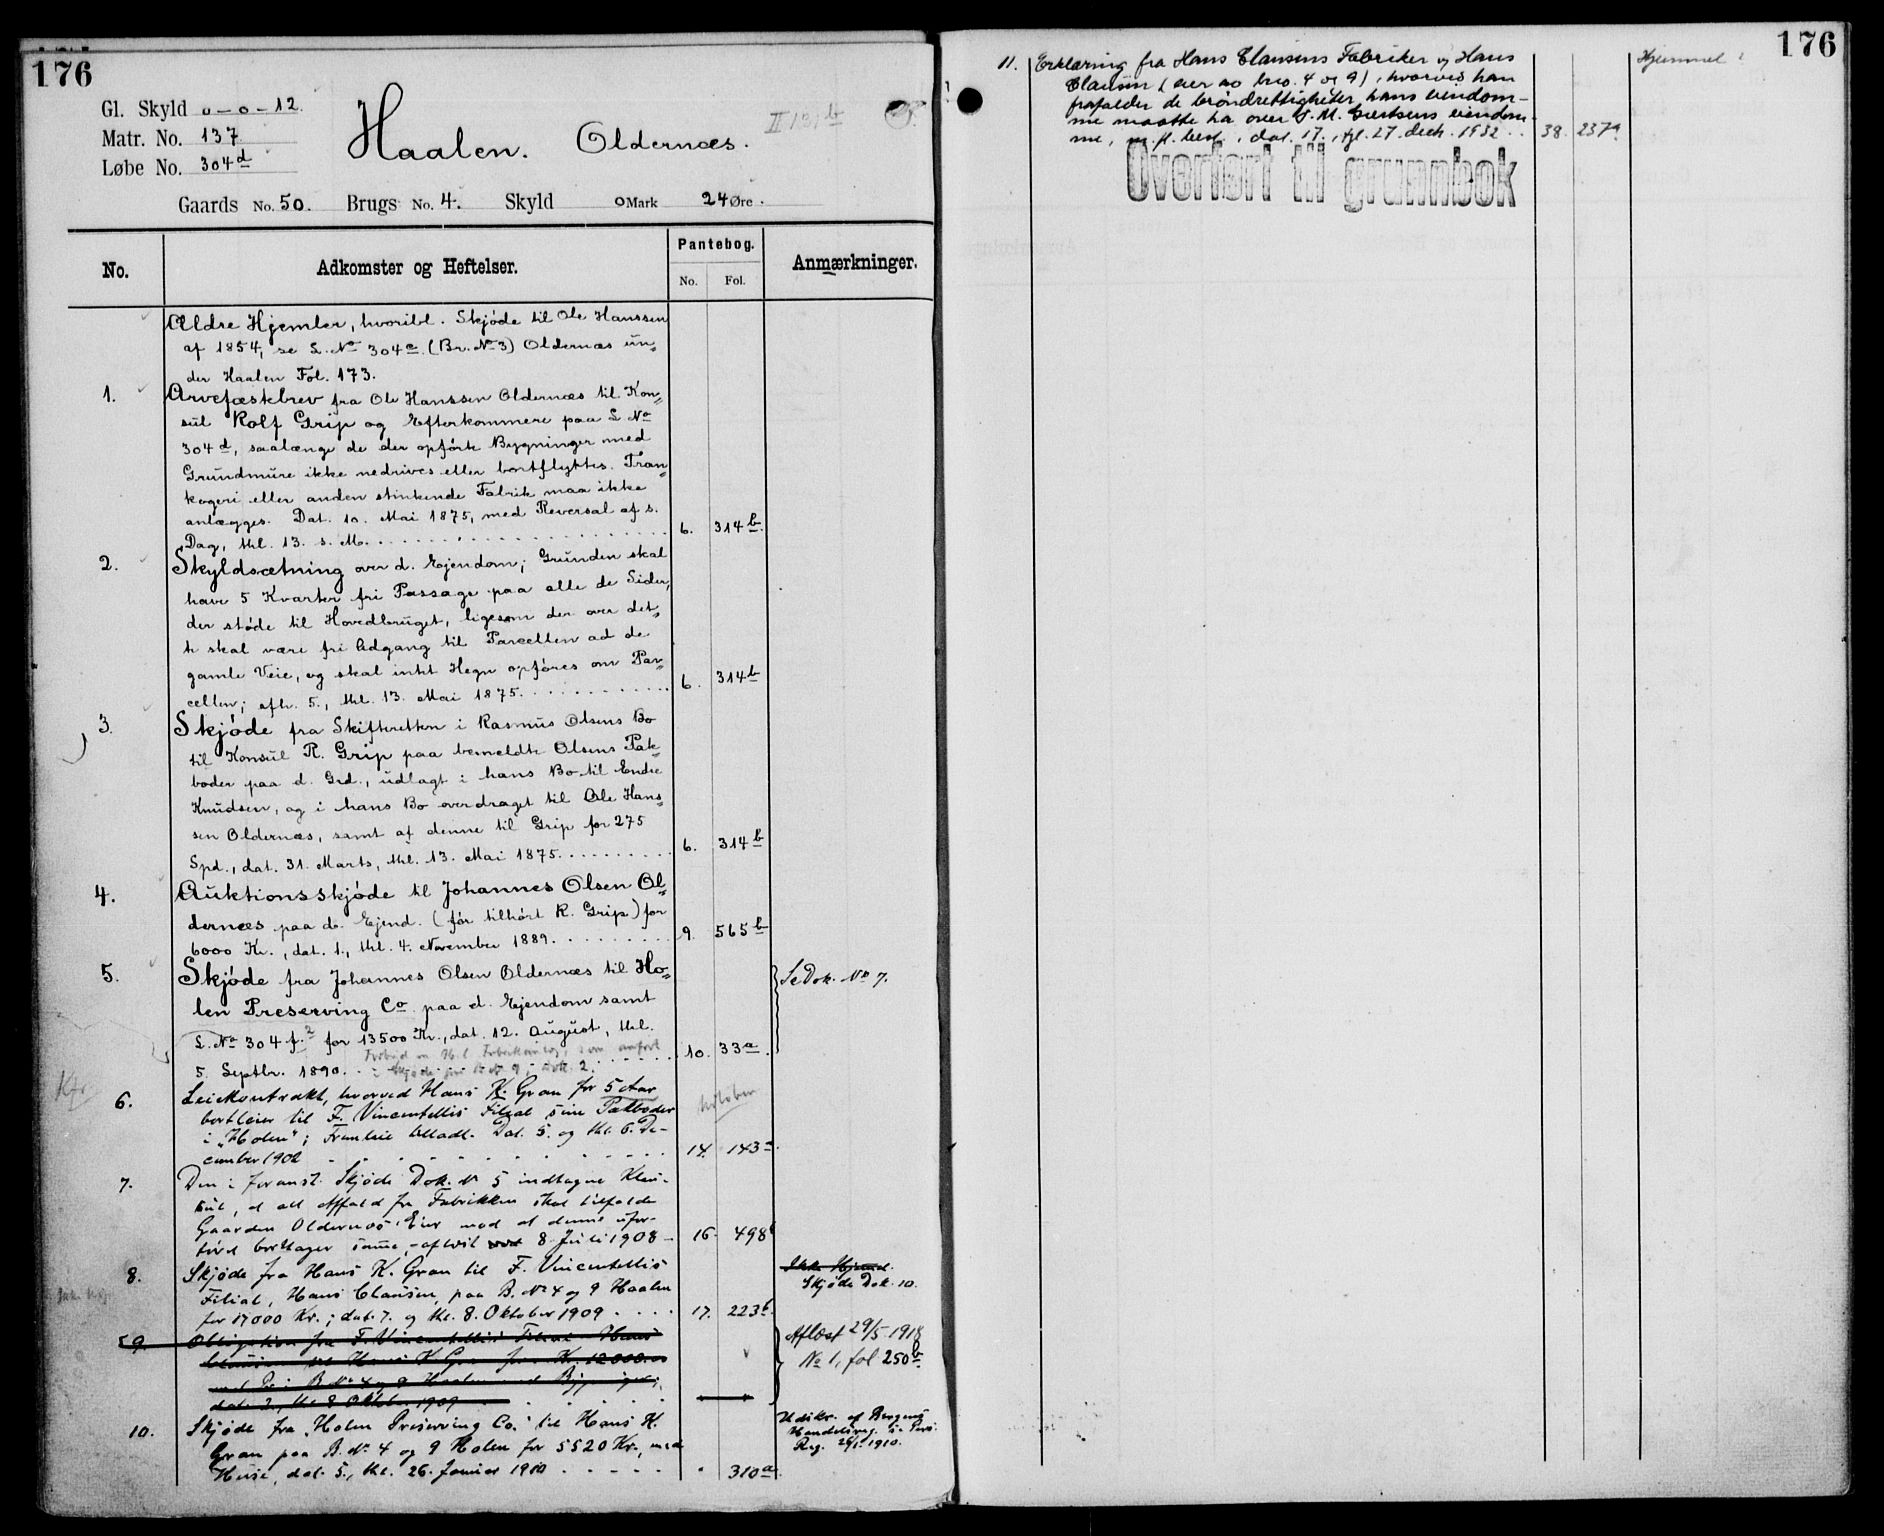 176
Gl. Skyld 0-0-12.
Matr. No. 137
Løbe No. 304 d
Haalen. Oldernæs.
II 131 b
Gaards No. 50. Brugs No. 4. Skyld 0 Mark 24 Øre.
No.
Adkomster og Heftelser.
Pantebog.
No. Fol.
Anmærkninger.
Ældre Hjemler, hvoribl. Skjøde til Ole Hanssen
af 1854, se L. No 304 c. (Br. No 3) Oldernæs un-
der Haalen Fol. 173.
1. Arvefæstebrev fra Ole Hanssen Oldernæs til Kon-
sul Rolf Grip og Efterkommere paa L No
304 d, saalænge de der opførte Bygninger med
Grundmure ikke nedrives eller bortflyttes. Tran-
kogeri eller anden stinkende Fabrik maa ikke
anlægges. Dat. 10. Mai 1875, med Reversal af s.
Dag, thl. 13. s. M. 6. 314 b.
2. Skyldsætning over d. Ejendom; Grunden skal
have 5 Kvarter fri Passage paa alle de Sider,
der støde til Hovedbruget, ligesom der over det-
te skal være fri Adgang til Parcellen ad de
gamle Veie, og skal intet Hegn opføres om Par-
cellen; afh. 5., thl. 13. Mai 1875. 6. 314 b
3. Skjøde fra Skifteretten i Rasmus Olsens Bo
til Konsul R. Grip paa bemeldte Olsens Pak-
boder paa d. Grd., udlagt i hans Bo til Endre
Knudsen, og i hans Bo overdraget til Ole Hans-
sen Oldernæs, samt af denne til Grip for 275
Spd., dat. 31. Marts, thl. 13. Mai 1875. 6. 314 b
4. Auktionsskjøde til Johannes Olsen Ol-
dernæs paa d. Ejend. (før tilhørt R. Grip) for
6000 Kr., dat. 1., thl. 4. November 1889. 9. 565 b
5. Skjøde fra Johannes Olsen Oldernæs til Ho-
len Preserving Co paa d. Ejendom samt
L. No 304 f.2 for 13500 Kr., dat. 12. August, thl.
5. Septbr. 1890. 10. 33 a.
Se Dok. No 7.
6. Leiekontrakt, hvorved Hans K. Gran for 5 Aar
bortleier til F. Vincentellis Filial sine Pakboder
i "Holen"; Fremleie tilladt. Dat. 5. og thl. 6. De-
cember 1902 14. 143 a
7. Den i foranst. Skjøde Dok. No 5 indtagne Klau-
sul, at alt Affald fra Fabrikken skal tilfalde
Gaarden Oldernæs' Eier mod at denne ufor-
tøvet borttager samme, - aflyst 8 Juli 1908 - 16. 498
8. Skjøde fra Hans K. Gran til F. Vincentellis
Filial, Hans Clausen, paa B. No 4 og 9 Haalen
for 17000 Kr.; dat. 7. og thl. 8. Oktober 1909 17. 223 b
Ikke Hjemmel.
Skjøde Dok. 10.
9. Obligation fra F. Vincentellis Filial Hans
Clausen til Hans K Gran for Kr. 12000.00
B No 4 og 9 Haalen med Bygninger,
dat. 7., thl. 8 Oktober 1909
Aflæst 29/5 1918
No 1, fol 250 b.
10. Skjøde fra "Holen Preserving Co." til Hans K.
Gran paa B. No. 4 og 9 Holen for 5520 Kr., med
Huse, dat. 5., thl. 26. Januar 1910 " 310 a
Udskr. af Bergens
Handelsreg. i
Reg. 1910.
176
11. Erklæring fra Hans Clausens Fabriker og Hans
Clausen (eier av brno. 4 og 9), hvorved han
frafalder de brøndrettigheter, hans eiendom-
me maatte ha over S. M. Giertsens eiendom-
me, m. fl. best., dat. 17., tgl. 27. decb. 1932 38. 237 a
Hjemmel
Overført til grunnbok